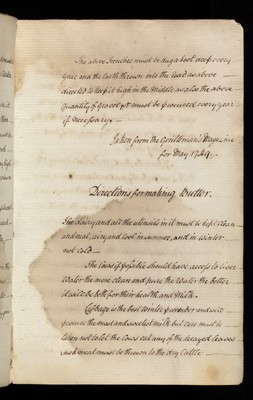 The above Trenches must be dug a foot deep every
year and the Earth thrown into the Road as above
directed to keep it high in the Middle as also the above
Quantity of Gravel &c must be procured every year
if Necessary.
Taken from the Gentleman's Magazine
for May 1749.
Directions for making Butter.
The dairy and all the utensils in it must be kept clean
and neat, airy and cool in summer, and in Winter
not cold
The Cows if possible should have access to River
Water the more clean and pure the Water the better
it will be both for their health and Milk.
Cabbage is the best Winter provender and will
produce the most and sweetest milk but care must be
taken not to let the Cows eat any of the decayed leaves
such meat must be thrown to the dry Cattle